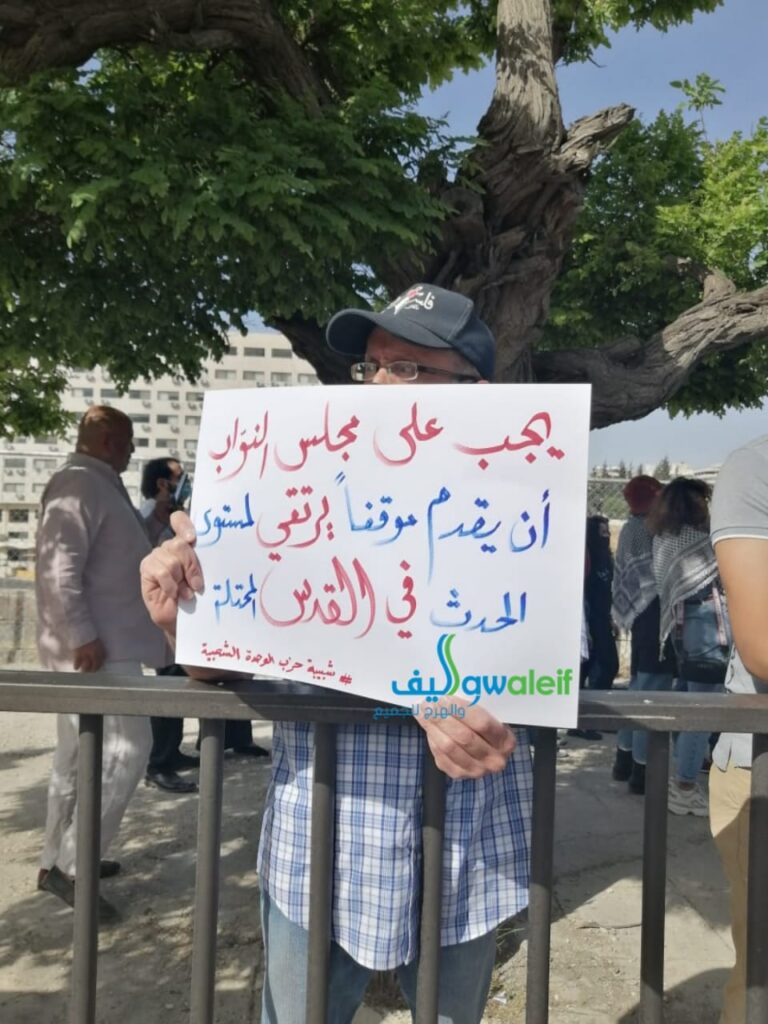 يجب على مجلس النوّاب
أن يقدم موقفاً يرتقي لمستوى
الحدث في القدس المحتلة
# شبيبة حزب الوحدة الشعبية
سواليف waleif
والهرج للجميع